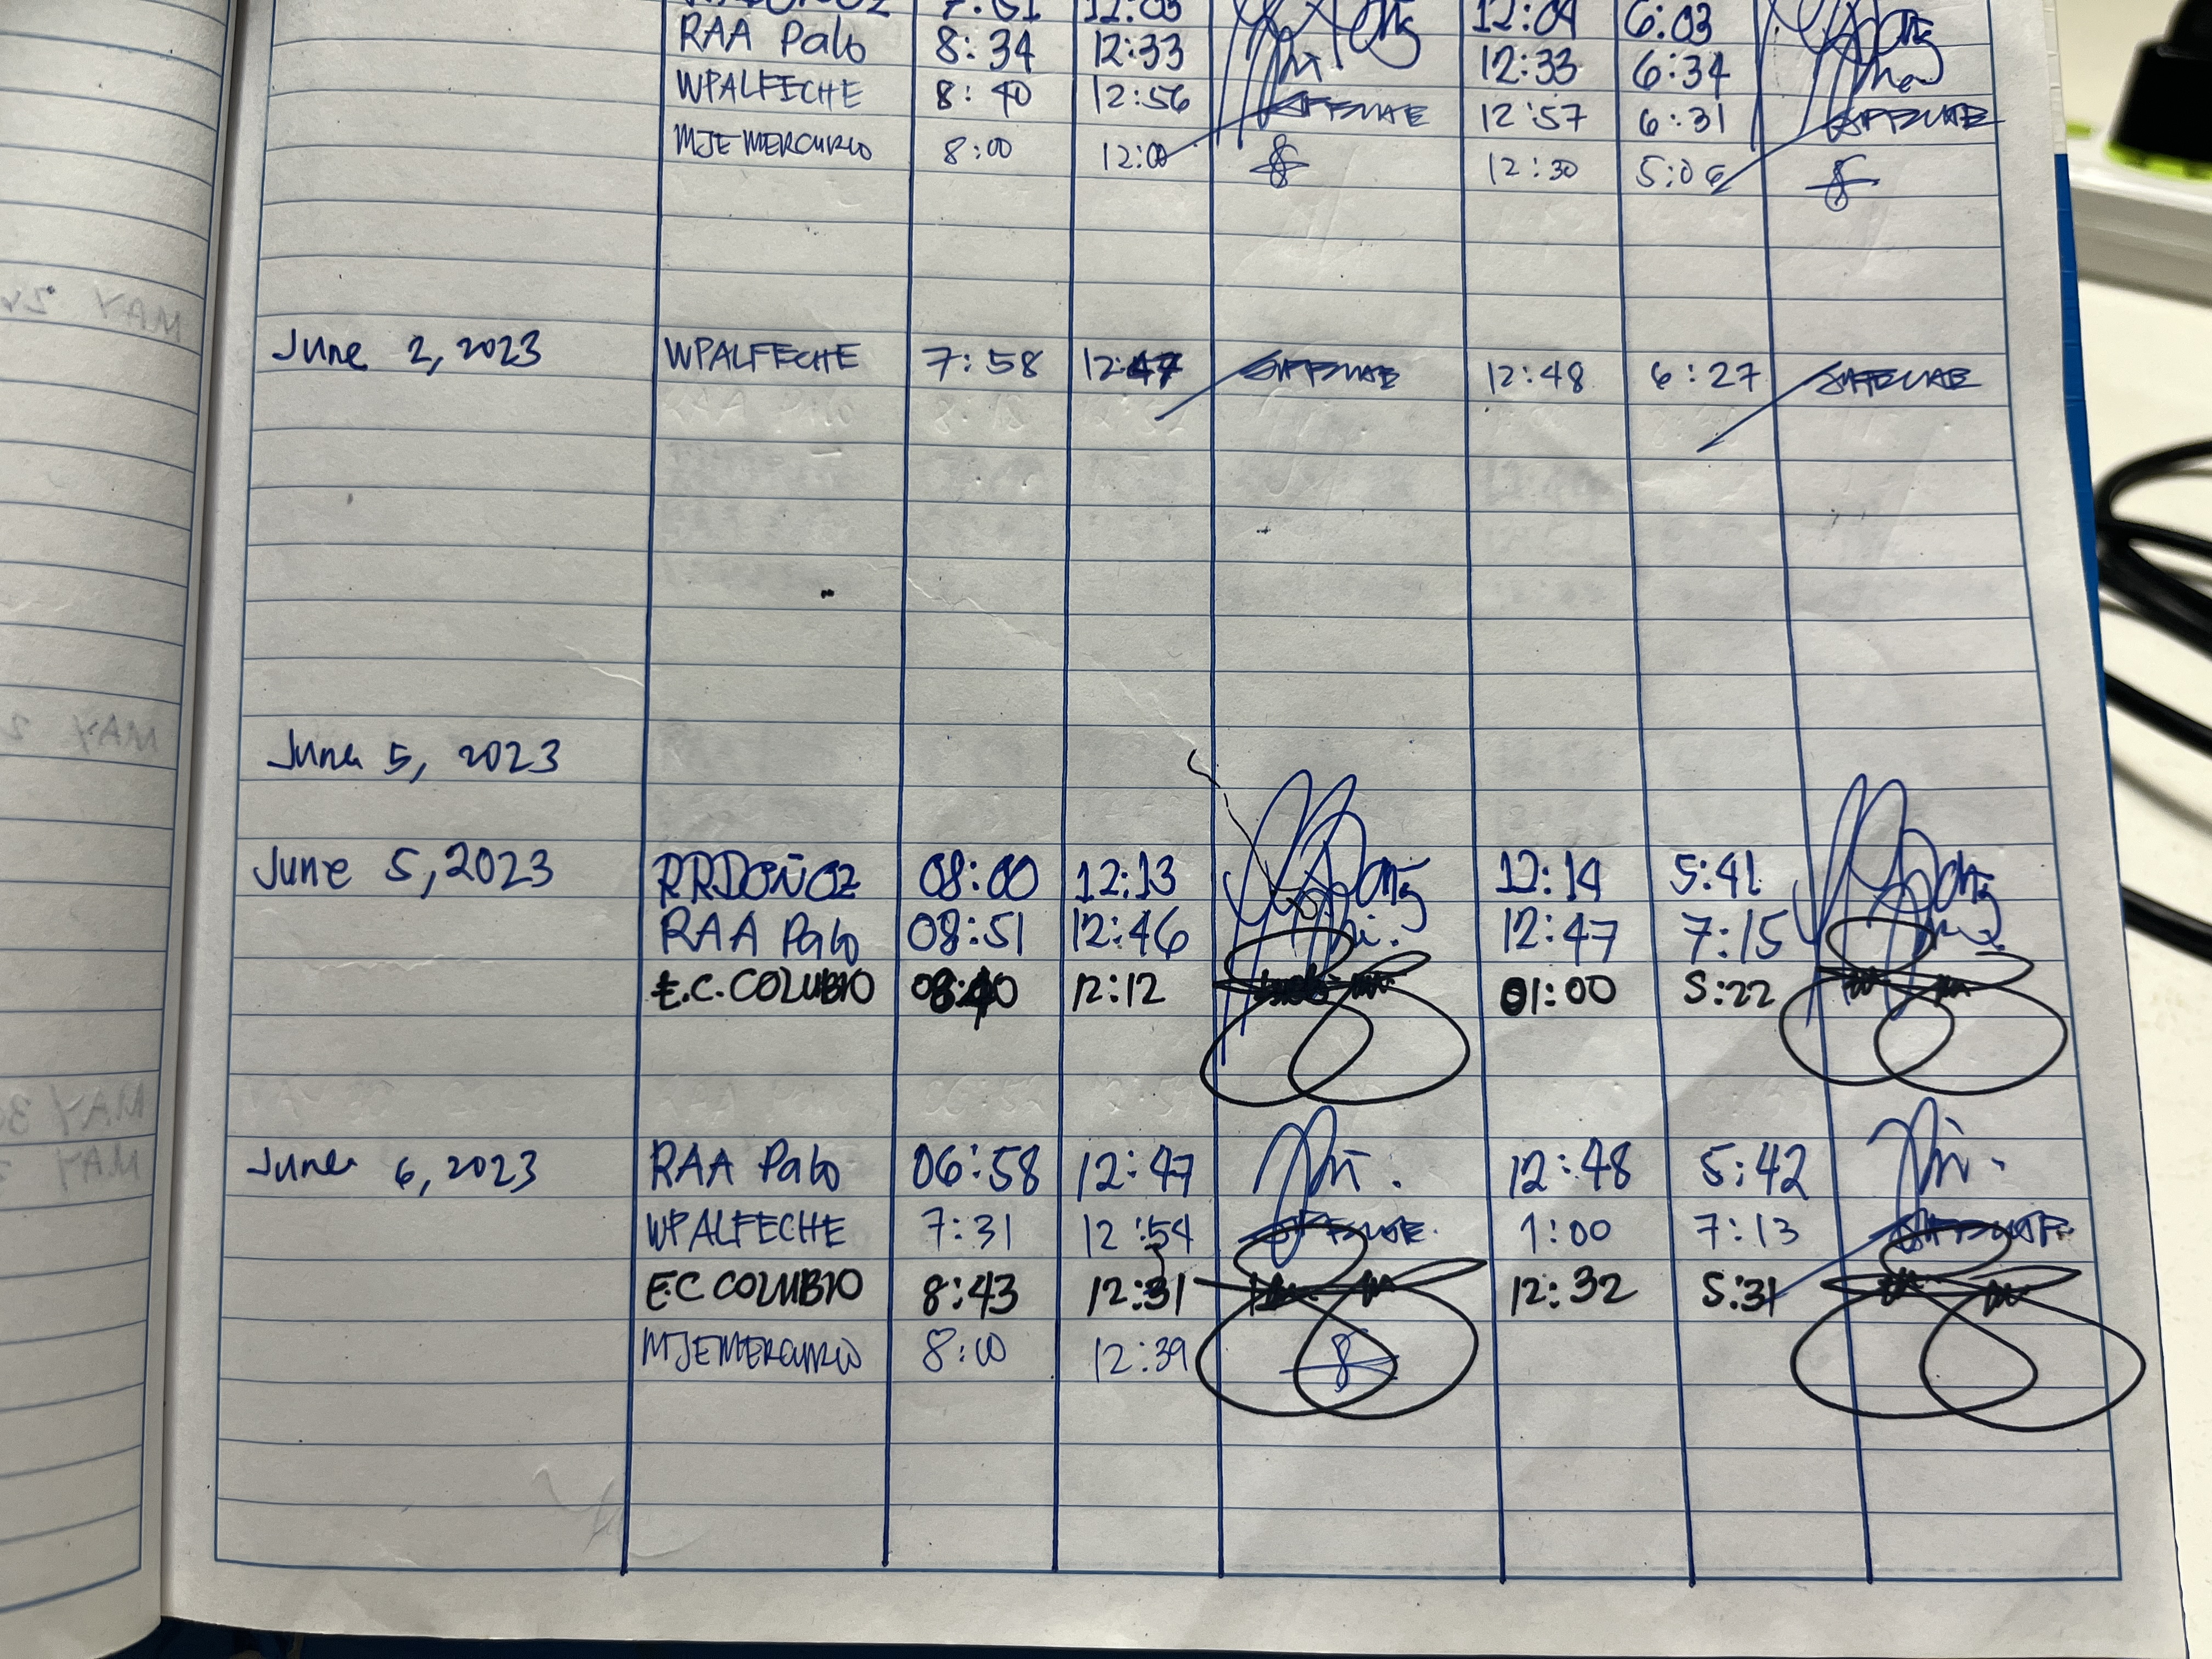 12:03 12:04 6:03
RAA Palo 8:34 12:33 12:33 6:34
WPALFECHE 8:40 12:56 12:57 6:31
MJEMERCURIO 8:00 12:00 12:30 5:06
June 2, 2023 WPALFECHE 7:58 12:47 12:48 6:27
June 5, 2023
June 5, 2023 RRDOÑOZ 08:00 12:13 12:14 5:41
RAA Palo 08:51 12:46 12:47 7:15
E.C. COLUBIO 12:12 01:00 5:22
June 6, 2023 RAA Palo 06:58 12:47 12:48 5:42
WPALFECHE 7:31 12:54 1:00 7:13
E.C COLUBIO 8:43 12:31 12:32 5:31
MJEMERCURIO 8:00 12:39